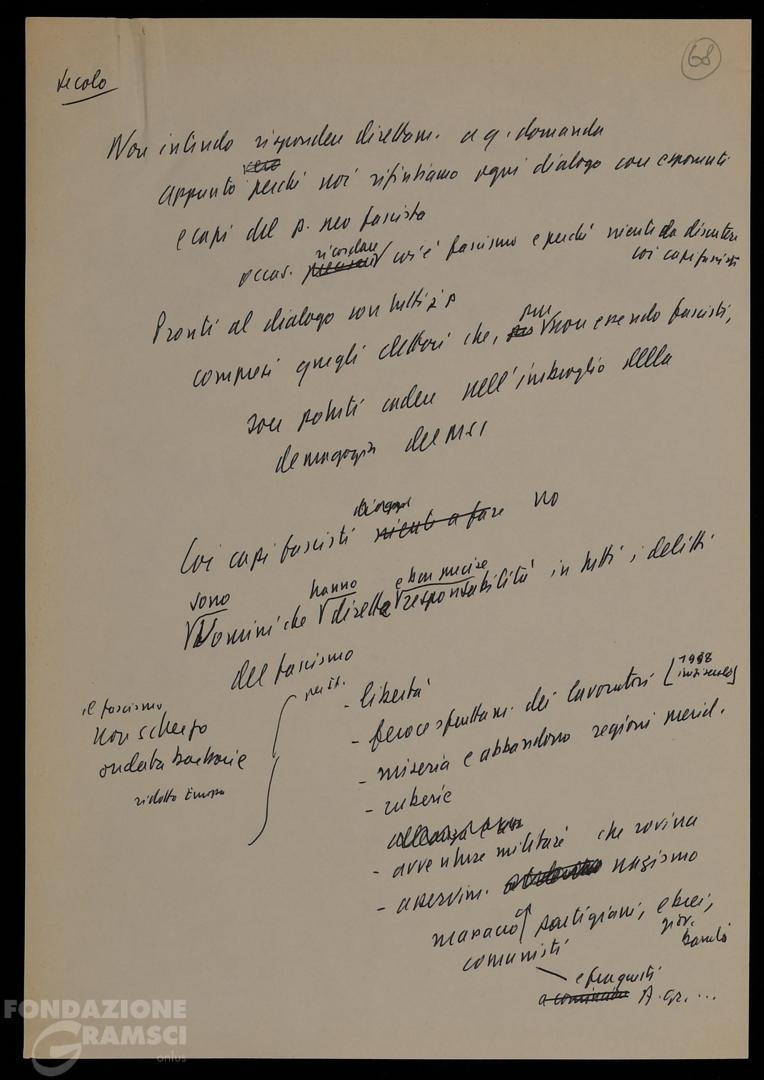 68
Secolo
Non intendo rispondere direttam. a q. domanda
appunto perché noi rifiutiamo ogni dialogo con esponenti
e capi del p. neo fascista
occor. ricordare cos'è fascismo e perché niente da discutere
coi capi fascisti
Pronti al dialogo con tutti i p
compresi quegli elettori che, pur non essendo fascisti,
son potuti cadere nell'imbroglio della
demagogia del MSI
dialogo
Coi capi fascisti niente a fare no
sono hanno e ben precise
Uomini che diretta responsabilità in tutti i delitti
del fascismo
perdita
- libertà
- feroce sfruttam. dei lavoratori [1938
- miseria e abbandono regioni merid.
- ruberie
il fascismo
non scherzo
ondata barbarie
ridotto Europa
- avventure militari che rovina
- asservim. nazismo
massacro partigiani, ebrei,
comunisti giov.
e fra questi
a cominciare A. Gr. ...
FONDAZIONE
GRAMSCI
onlus